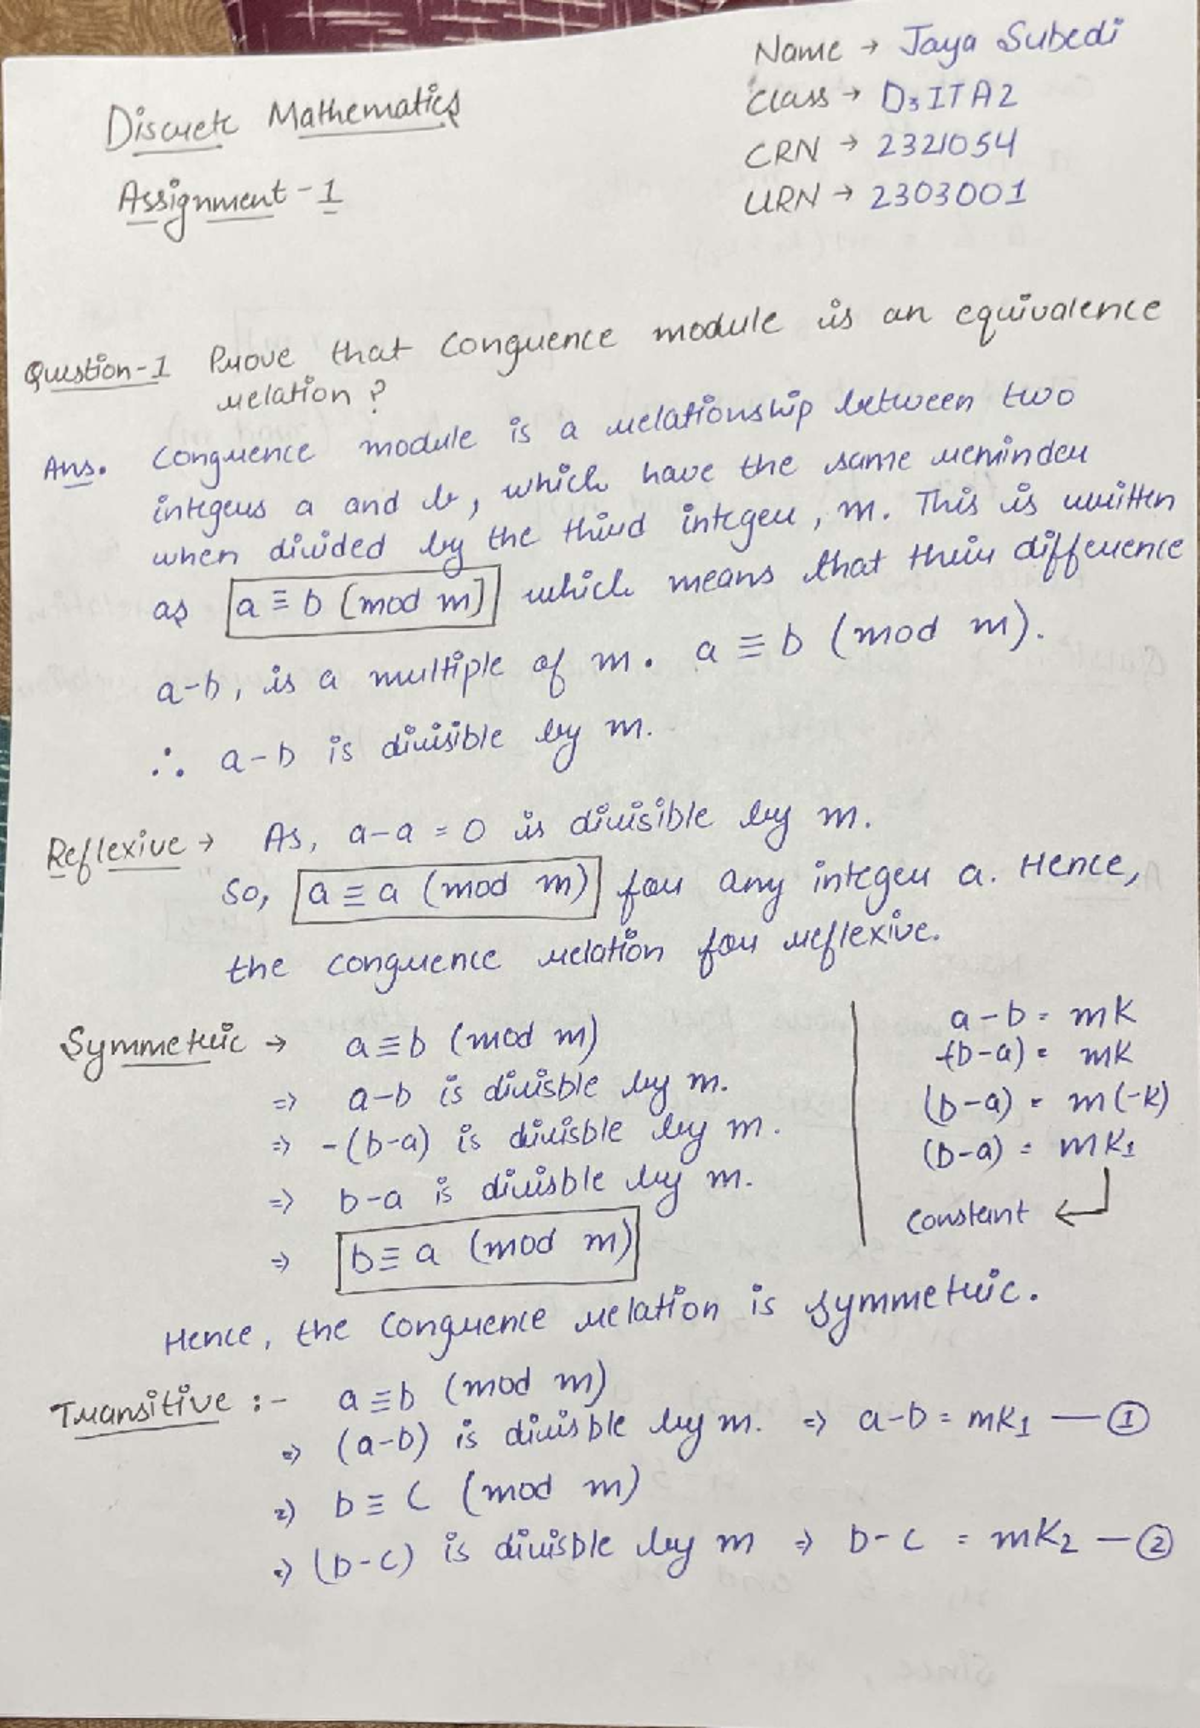 Discrete Mathematics
Assignment-1
Name → Jaya Subedi
Class → D3ITA2
CRN → 2321054
URN → 2303001
Question-1 Prove that Congruence module is an equivalence
relation?
Ans. Congruence module is a relationship between two
integers a and b, which have the same reminder
when divided by the third integer, m. This is written
as a ≡ b (mod m) which means that their difference
a-b, is a multiple of m. a ≡ b (mod m).
∴ a-b is divisible by m.
Reflexive → As, a-a = 0 is divisible by m.
So, a ≡ a (mod m) for any integer a. Hence,
the congruence relation for reflexive.
Symmetric → a≡b (mod m)
⇒ a-b is divisble by m.
⇒ -(b-a) is divisble by m.
⇒ b-a is divisble by m.
⇒ b≡ a (mod m)
a-b = mK
-(b-a) = mK
(b-a) = m(-K)
(b-a) = mK1
Constant
Hence, the Congruence relation is symmetric.
Transitive :- a≡b (mod m)
⇒ (a-b) is divisble by m. ⇒ a-b = mK1 — ①
⇒ b ≡ C (mod m)
⇒ (b-c) is divisble by m ⇒ b-c = mK2 — ②